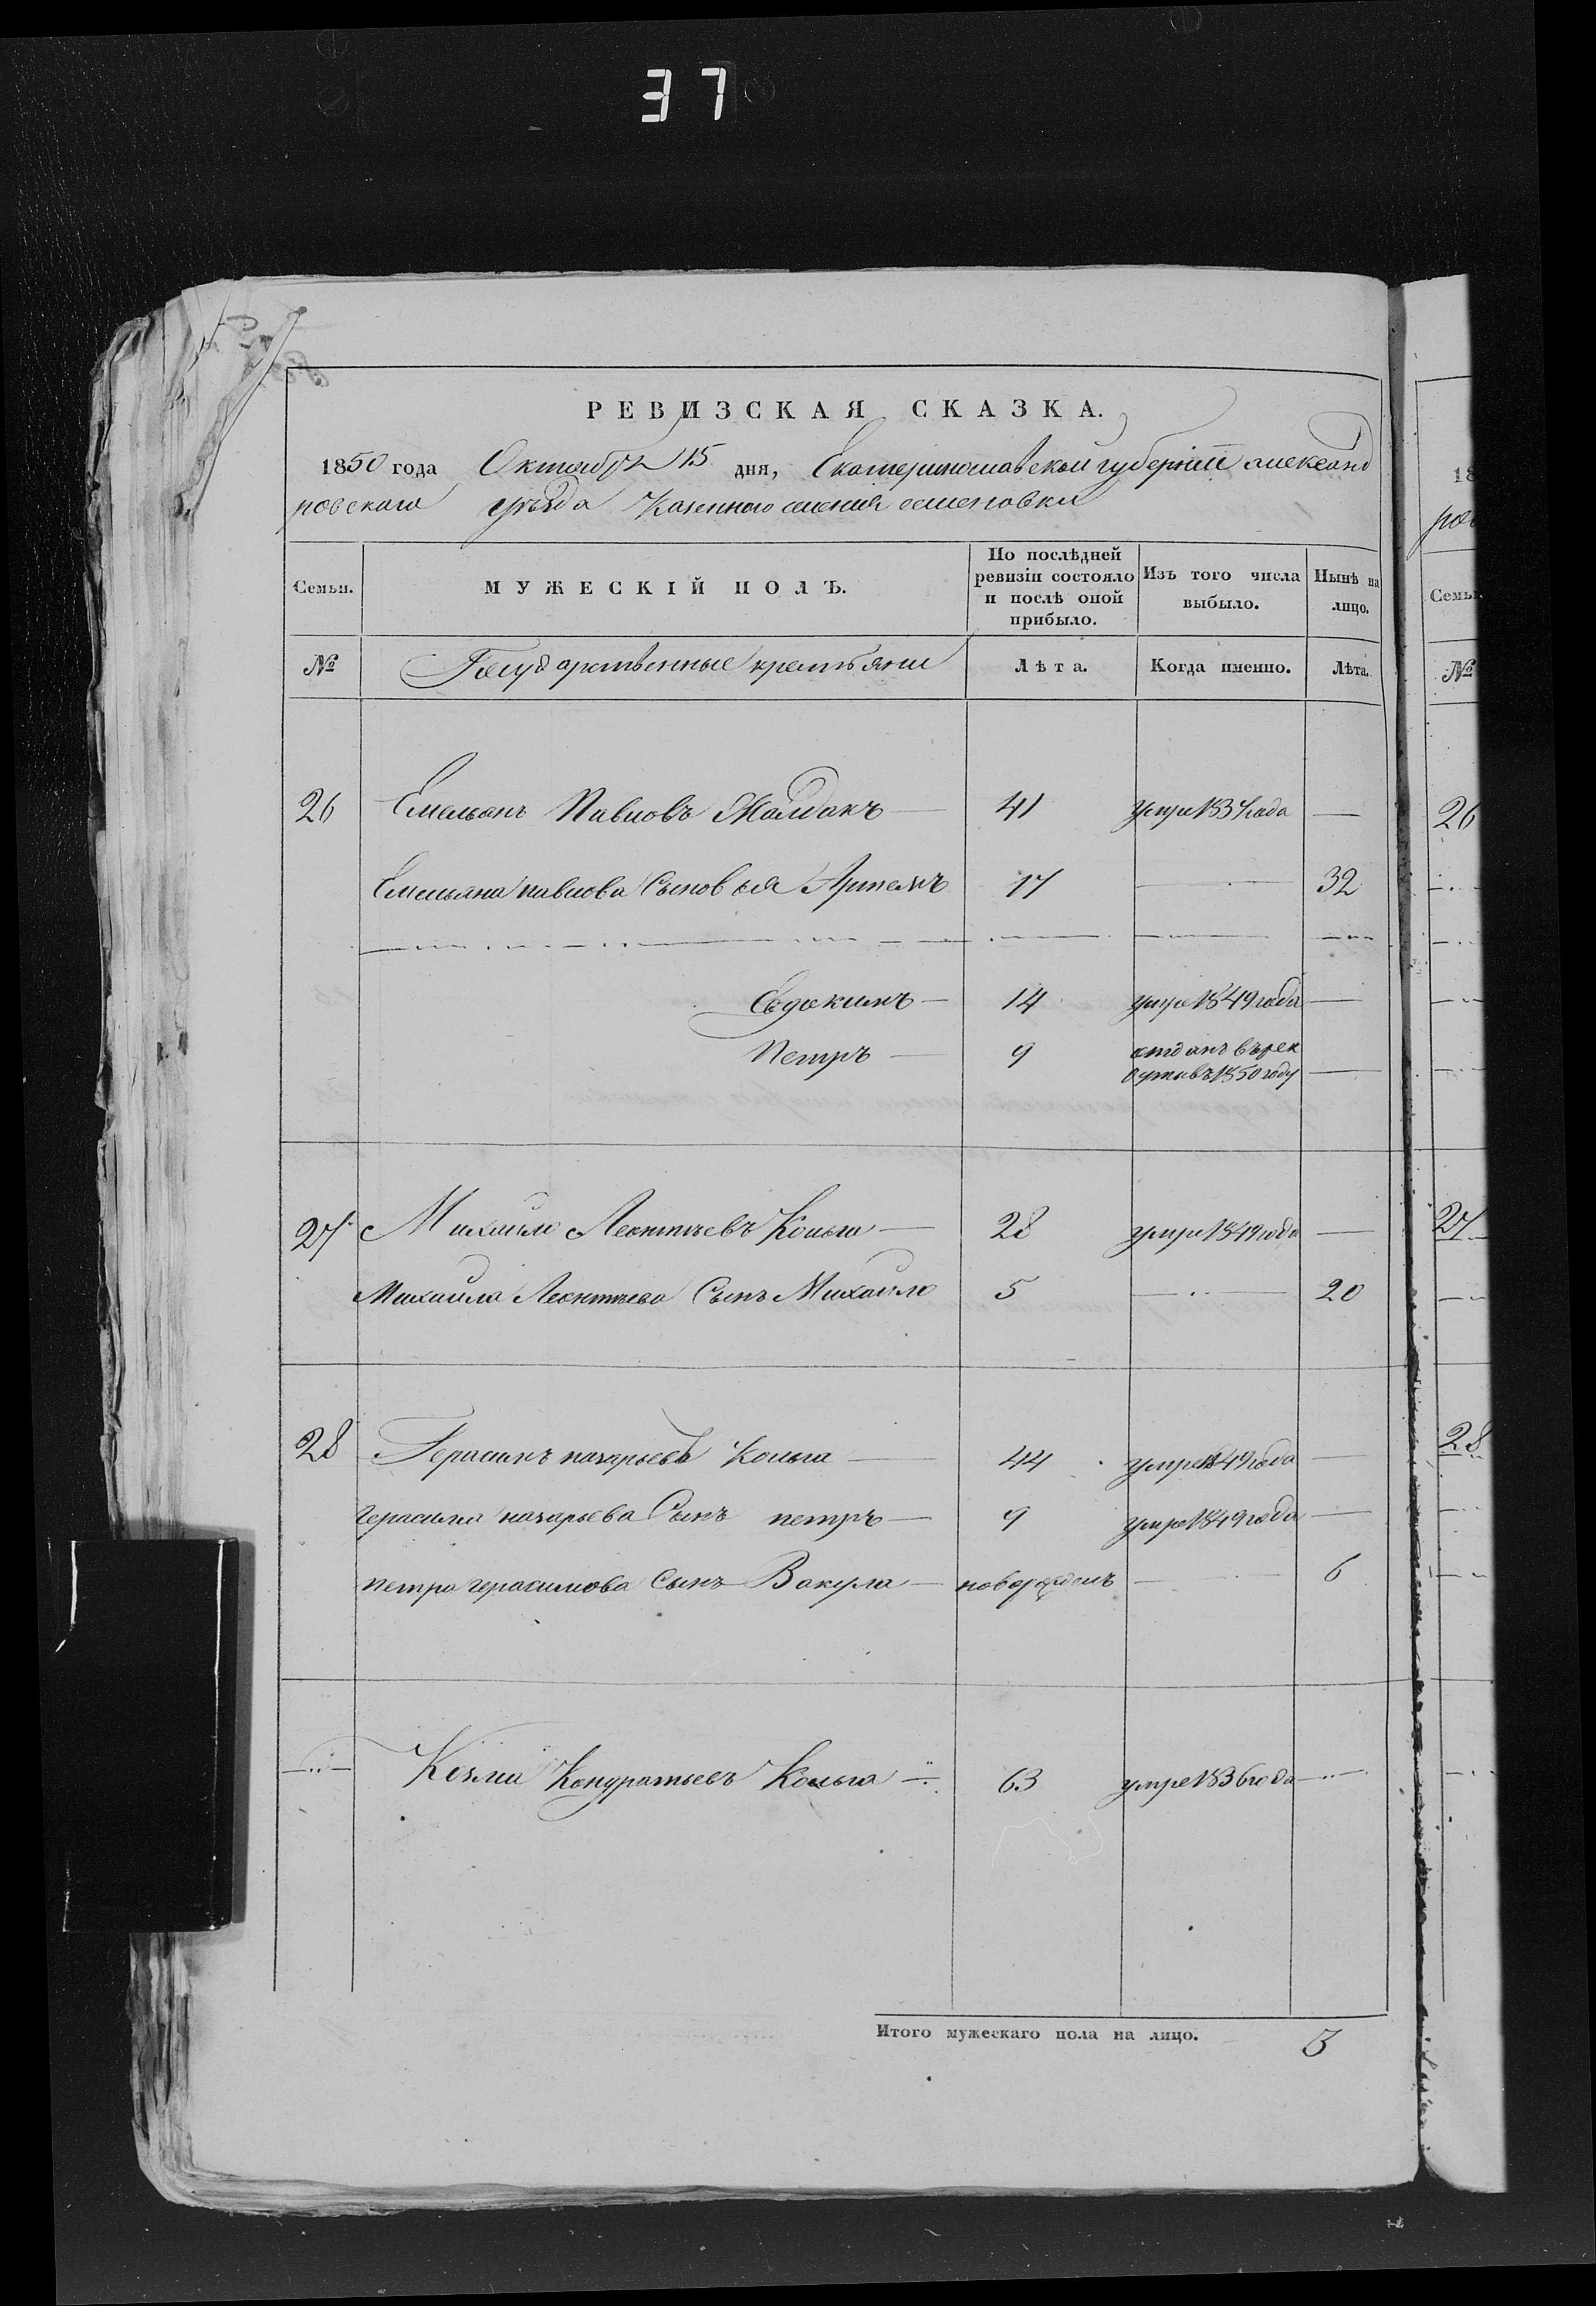 37
РЕВИЗСКАЯ СКАЗКА.
1850 года Октября 15 дня, Екатеринославской губернiи александ
ровскаго уѣзда Казенного селенiя семеновки
Семьи. МУЖЕСКІЙ ПОЛЪ. По послѣдней ревизіи состояло и послѣ оной прибыло. Изъ того числа выбыло. Нынѣ на лицо.
№ Государственные крестьяне Лѣта. Когда именно. Лѣта.
26 Емельянъ Павловъ Жалдакъ — 41 умре 1837 года —
Емельяна павлова Сыновья Артемъ 17 — 32
Евдокимъ — 14 умре 1849 года —
Петръ — 9 отданъ въ рек
рутывъ 1850 году —
27 Михайло Леонтьевъ Кольга — 28 умре 1849 года —
Михайла Леонтьева Сынъ Михайло 5 — 20
28 Герасимъ назарьевъ Кольга — 44 умре 1849 года —
герасима назарьева Сынъ петръ — 9 умре 1849 года —
петра герасимова Сынъ Вакула — новорожденъ — 6
Козма Кондратьевъ Кольга — 63 умре 1836 года —
Итого мужескаго пола на лицо. 3
18
ро
Семьи.
№
26
27
28